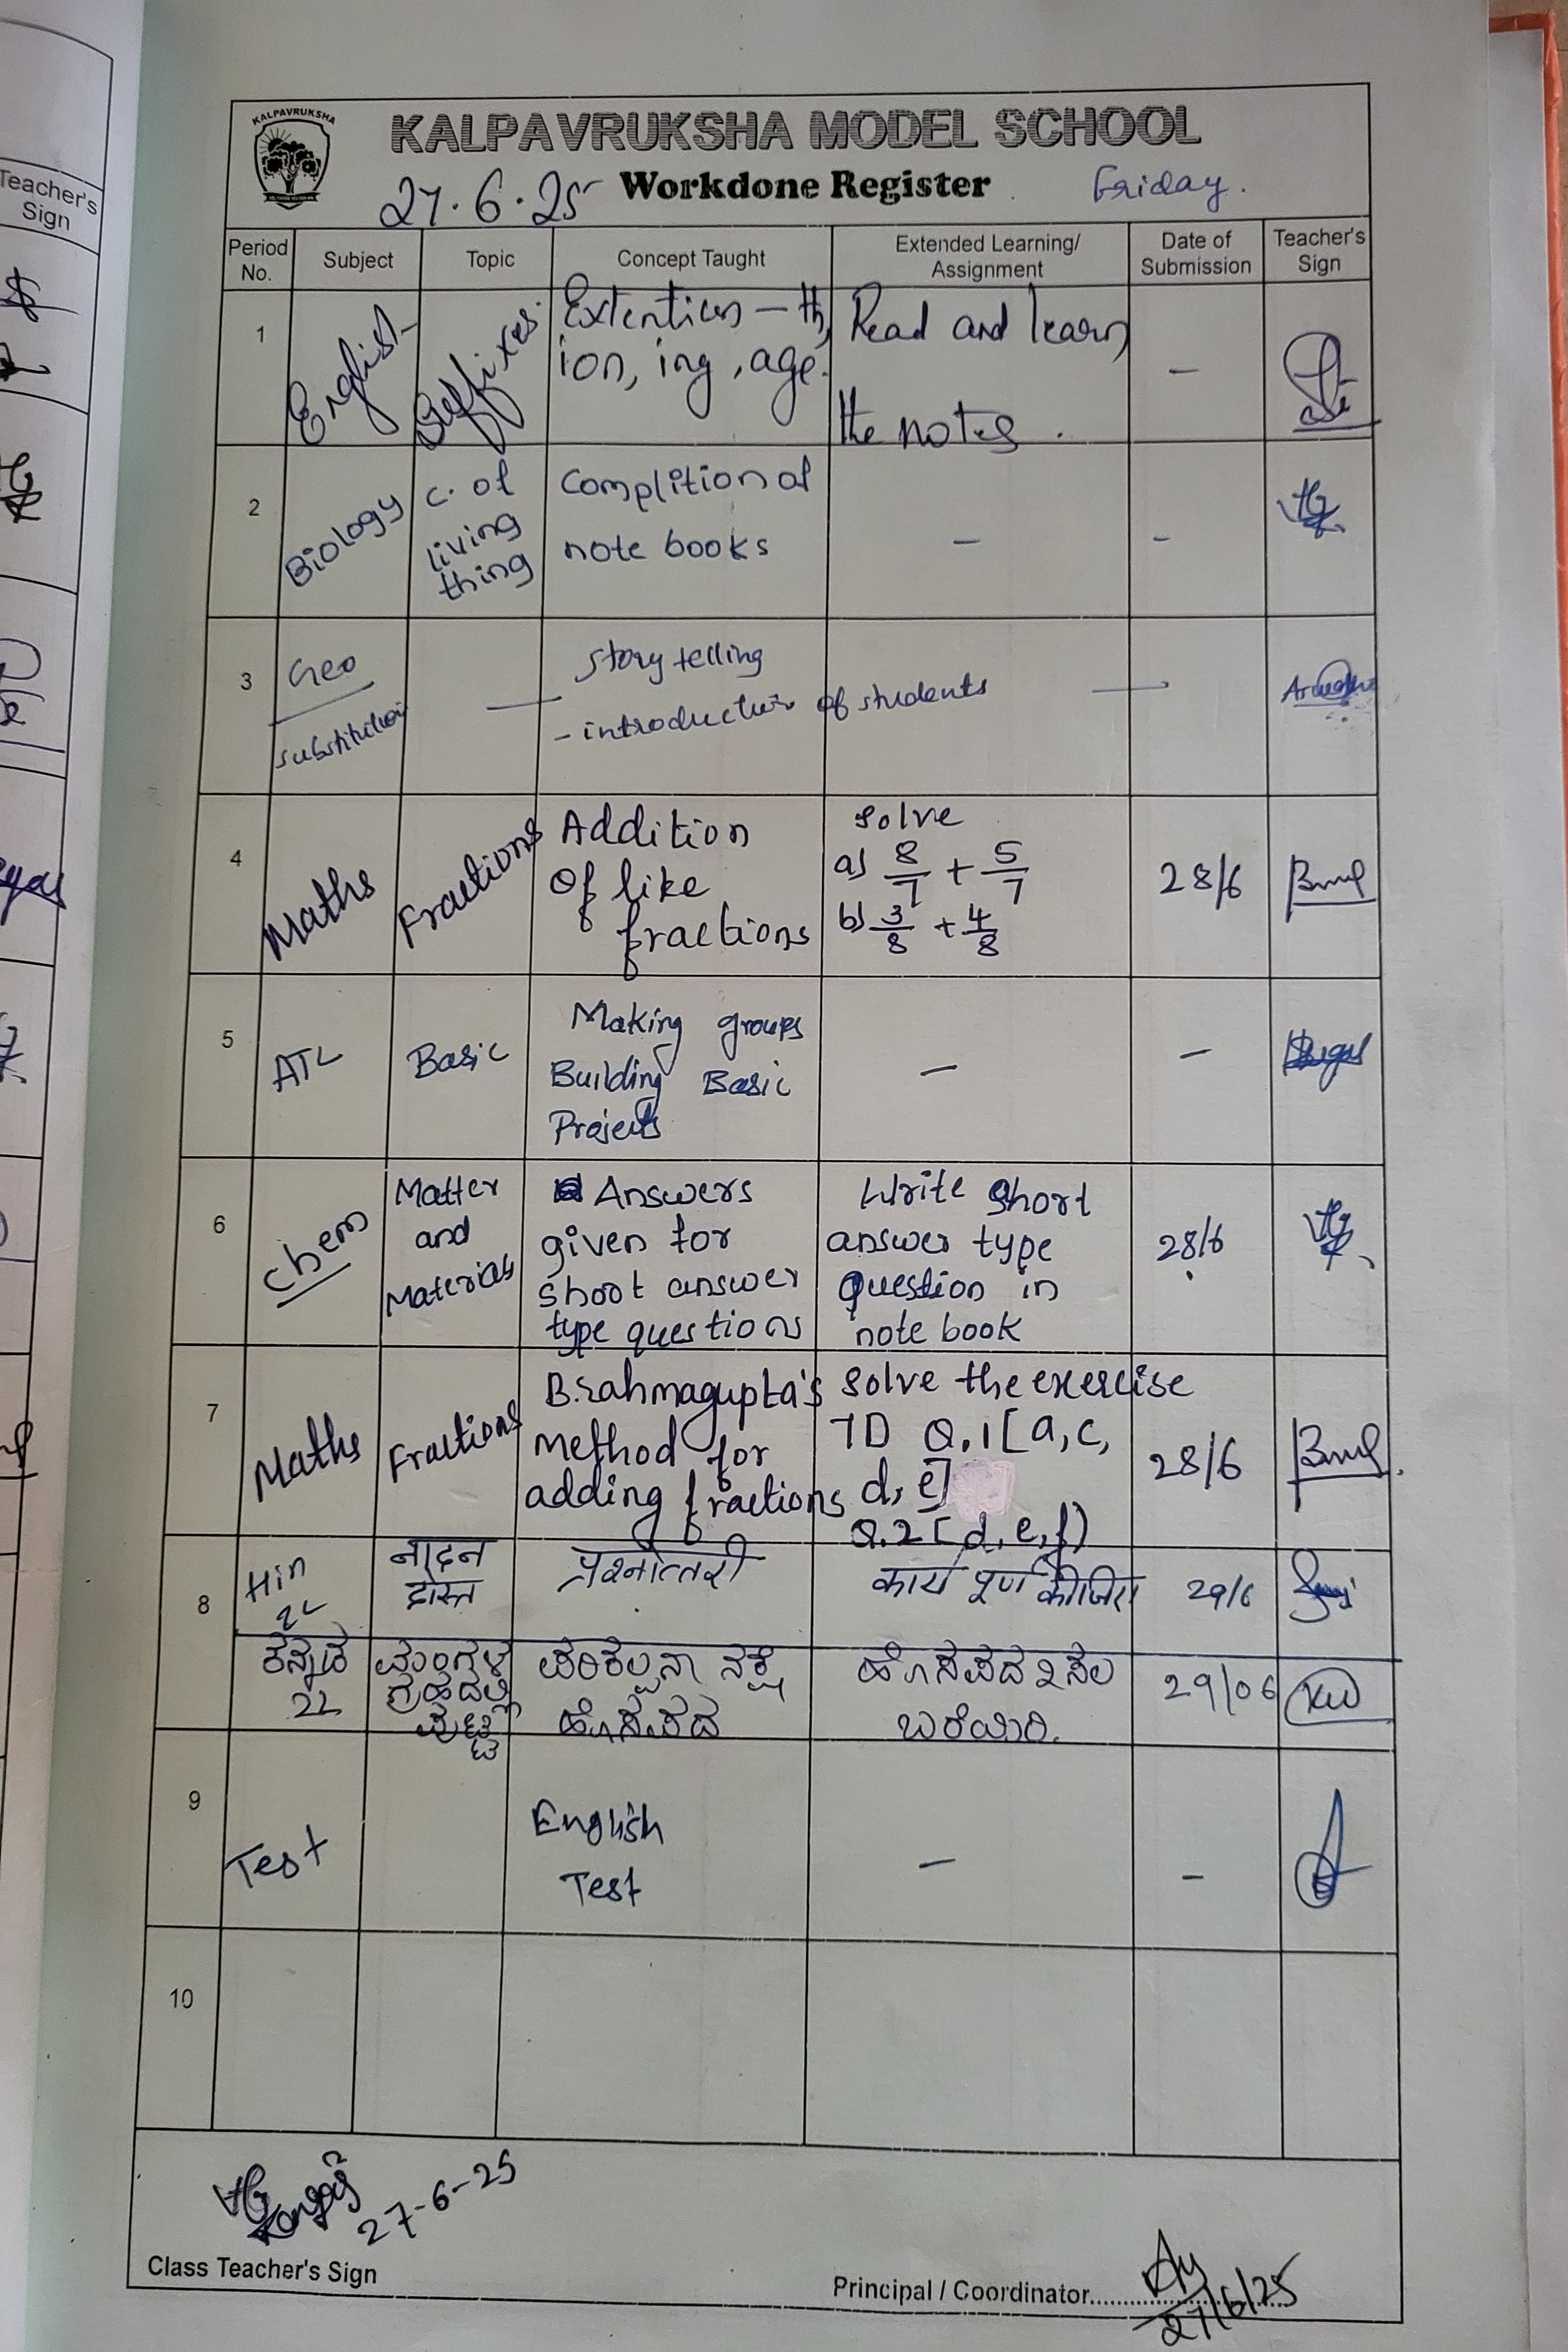 Teacher's
Sign
KALPAVRUKSHA
KALPAVRUKSHA MODEL SCHOOL
27.6.25 Workdone Register Friday.
Period No. Subject Topic Concept Taught Extended Learning/ Assignment Date of Submission Teacher's Sign
1 English Suffixes. Extentices – th, Read and learn –
ion, ing, age.
the notes.
2 Biology c. of Complition of – -
living note books
thing
3 Geo — Story telling —
substitution - introduction of students
4 Maths Fractions Addition solve 28/6
Of like a) 8/7 + 5/7
fractions b) 3/8 + 4/8
5 ATL Basic Making groups – –
Building Basic
Projects
6 Chem Matter Answers Write short 28/6
and given for answer type
Materials shoot answer question in
type questions note book
7 Maths Fractions Brahmagupta's solve the exercise 28/6
method for 7D Q.1[a,c,
adding fractions d, e]
Q.2[d,e,f)
8 Hin नादन प्रश्नोत्तरी कार्य पूर्ण कीजिए 29/6
2L दोस्त
ಕನ್ನಡ ಮಂಗಳ ಪರಿಕಲ್ಪನಾ ನಕ್ಷೆ ಹೊಸಪದ 2 ಸಲ 29/06
2L ಗ್ರಹದಲ್ಲಿ ಹೊಸಪದ ಬರೆಯಿರಿ.
ಪುಟ್ಟಿ
9 Test English – -
Test
10
27-6-25
Class Teacher's Sign
Principal / Coordinator
27/6/25